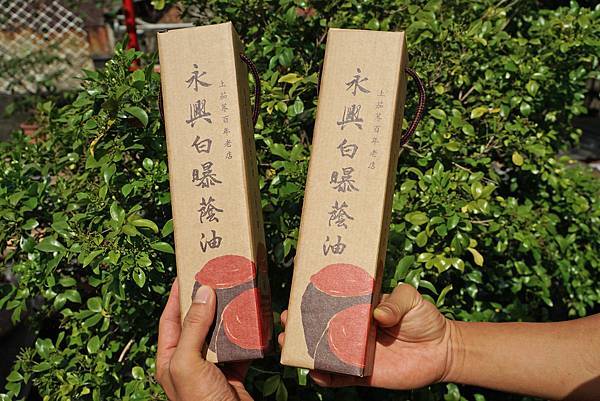 土茄苳百年老店
永興白曝蔭油
土茄苳百年老店
永興白曝蔭油